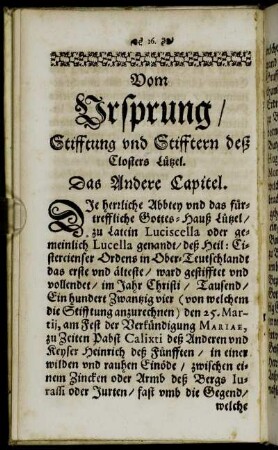 16.
Vom
Vrsprung/
Stifftung vnd Stifftern deß
Closters Lützel.
Das Andere Capitel.
DJe herrliche Abbtey vnd das für-
treffliche Gottes-Hauß Lützel/
zu Latein Luciscella oder ge-
meinlich Lucella genandt/ deß Heil: Ci-
stercienser Ordens in Ober-Teutschlandt
das erste vnd älteste/ ward gestifftet vnd
vollendet/ im Jahr Christi/ Tausend/
Ein hundert Zwantzig vier (von welchem
die Stifftung anzurechnen) den 25. Mar-
tij, am Fest der Verkündigung MARIAE,
zu Zeiten Pabst Calixti deß Anderen vnd
Keyser Heinrich deß Fünfften/ in einer
wilden vnd rauhen Einöde/ zwischen ei-
nem Zincken oder Armb deß Bergs Iu-
rassi oder Jurten/ fast vmb die Gegend/
welche